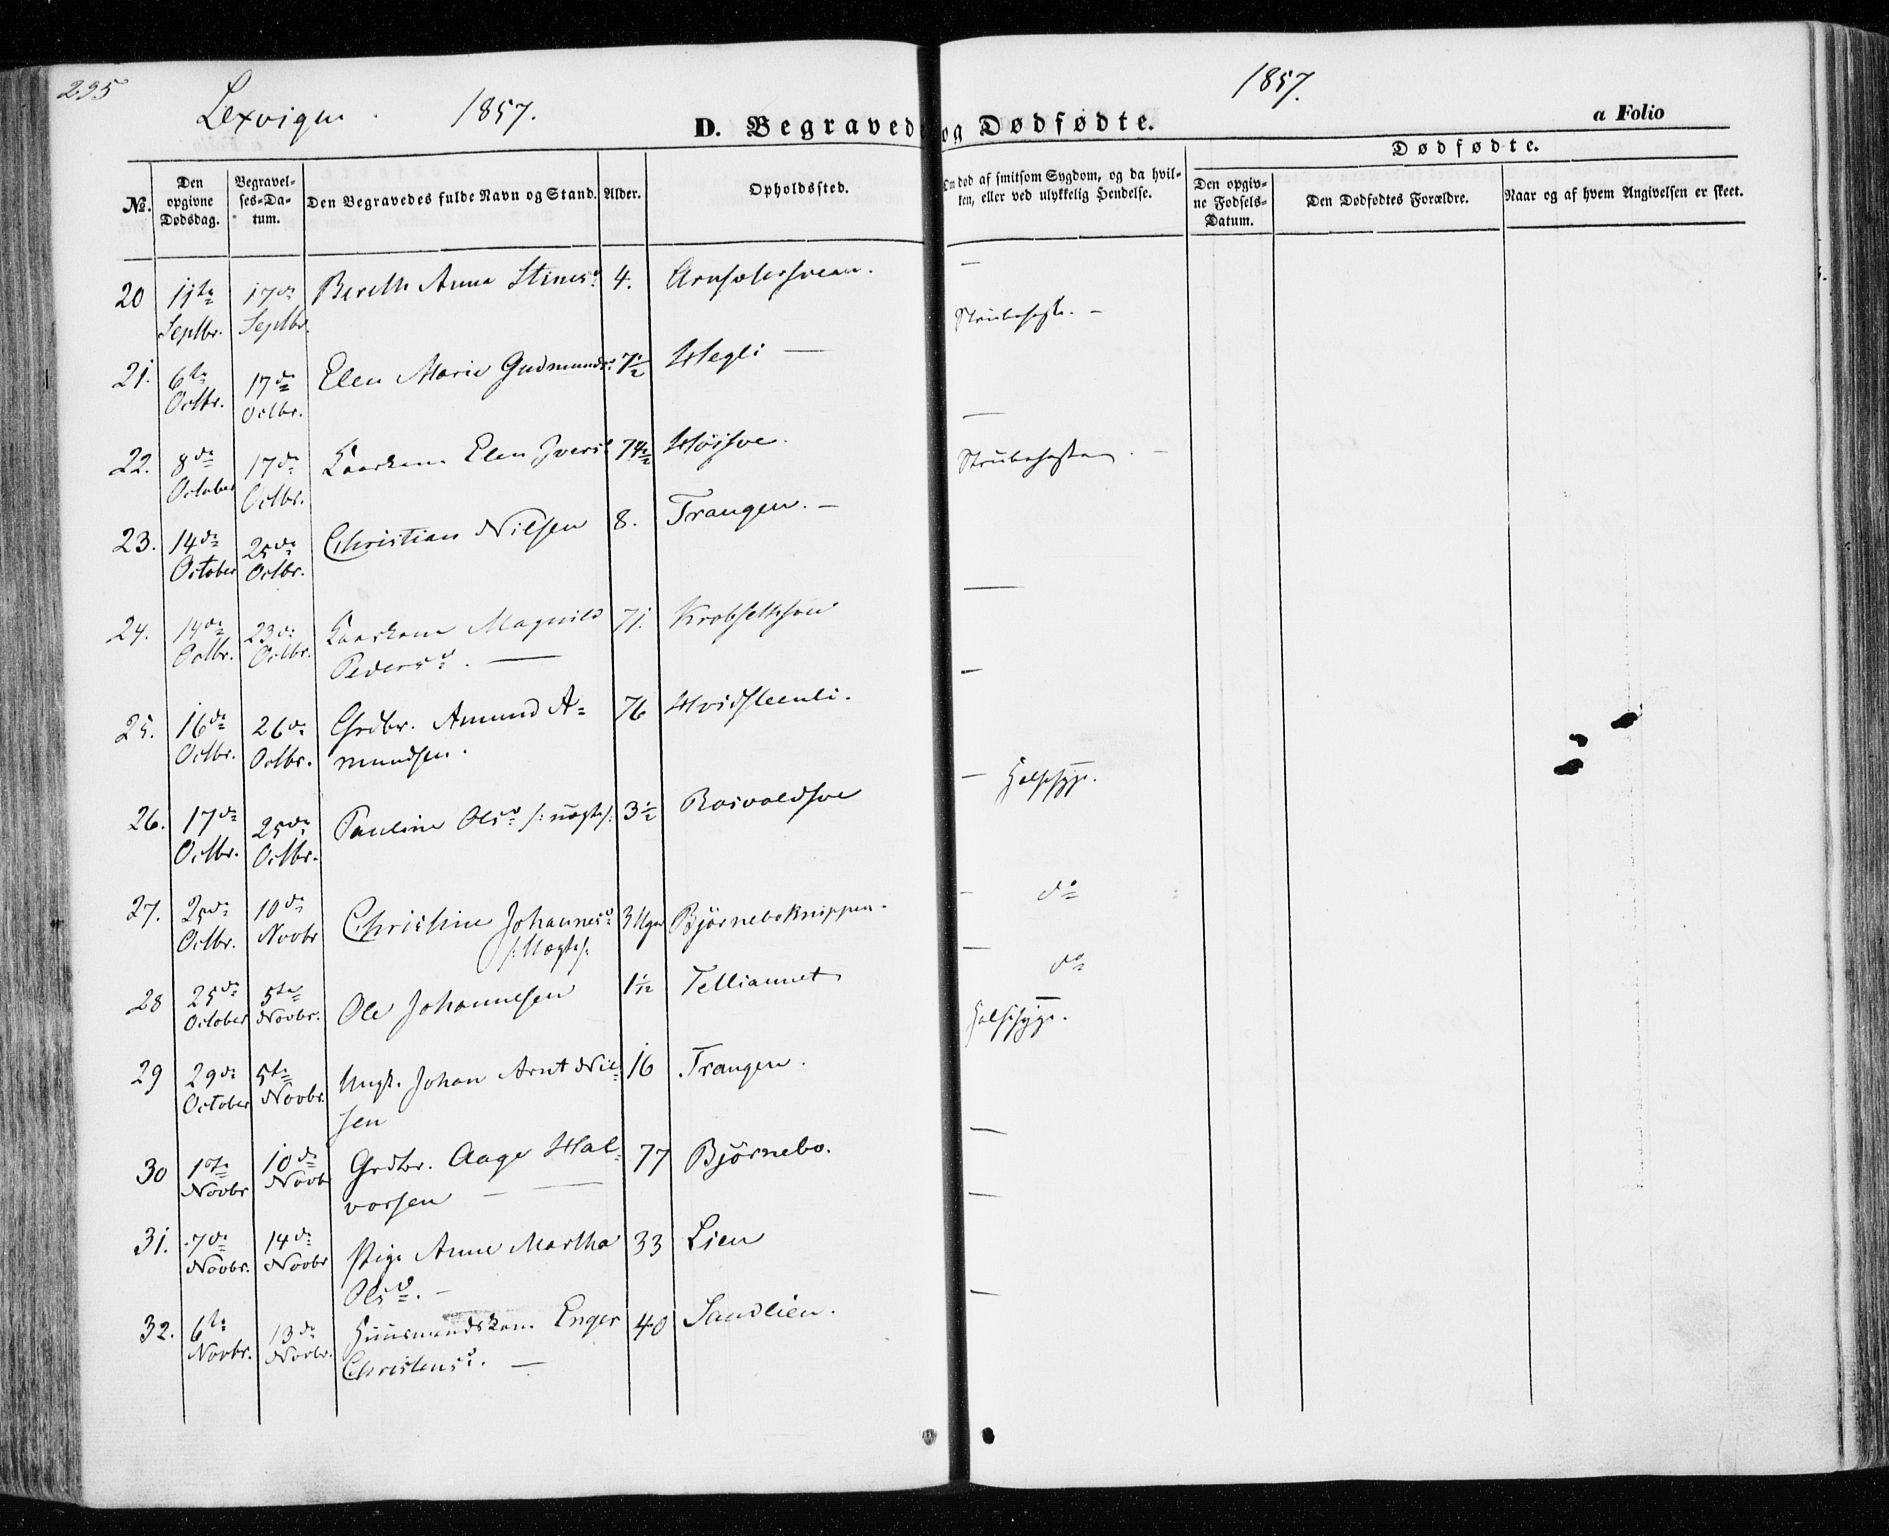 295
Lexvigen. 1857. 1857.
D. Begravede og Dødfødte. a Folio
Dødfødte.
No. Den opgivne Dødsdag. Begravelses-Datum. Den Begravedes fulde Navn og Stand. Alder. Opholdssted. Om død af smitsom Sygdom, og da hvilken, eller ved ulykkelig Hendelse. Den opgivne Fødsels-Datum. Den Dødfødtes Forældre. Naar og af hvem Angivelsen er skeet.
20 11te Septbr. 17de Septbr. Bereth Anna Stines. 4. —
Strubehoste. —
21. 6te Octbr. 17de Octbr. Elen Marie Gudmunds. 7½ Hegli — —
22. 8de October 17de Octbr. Kaarkone Elen Ivers. 74½ Höisve. Strubehosten. —
23. 14de October 25de Octbr. Christian Nilsen 8. Trangen. — —
24. 14de Octbr. 23de Octbr. Kaarkone Magnild 71.
Pedersd. — —
25. 16de Octbr. 26de Octbr. Grdbr. Amund A= 76 Hvidsteenli.
mundsen.
26. 17de Octbr. 25de Octbr. Pauline Olsd /: uægte :/ 3½ Rosvoldsve — Halssyge.
27. 25de Octbr. 10de Novbr Christine Johannesd. 3 Uger Björneboknippen. — do
/: Uægte :/
28 25de October 5te Novbr. Ole Johannesen 1 1/12 Telliaunet — do
29 29de October 5te Novbr. Ungk. Johan Arnt Nil= 16 Trangen. Halssyge.
sen
30 1ste Novbr 10de Novb Grdbr. Aage Hal= 77 Björnebo. —
vorsen — —
31. 7de Novbr. 14de Novbr Pige Anne Martha 33 Lien —
Olsd. —
32. 6te Novbr. 13de Novbr. Huusmandskone Enger 40 Sandlien. —
Christensd. —